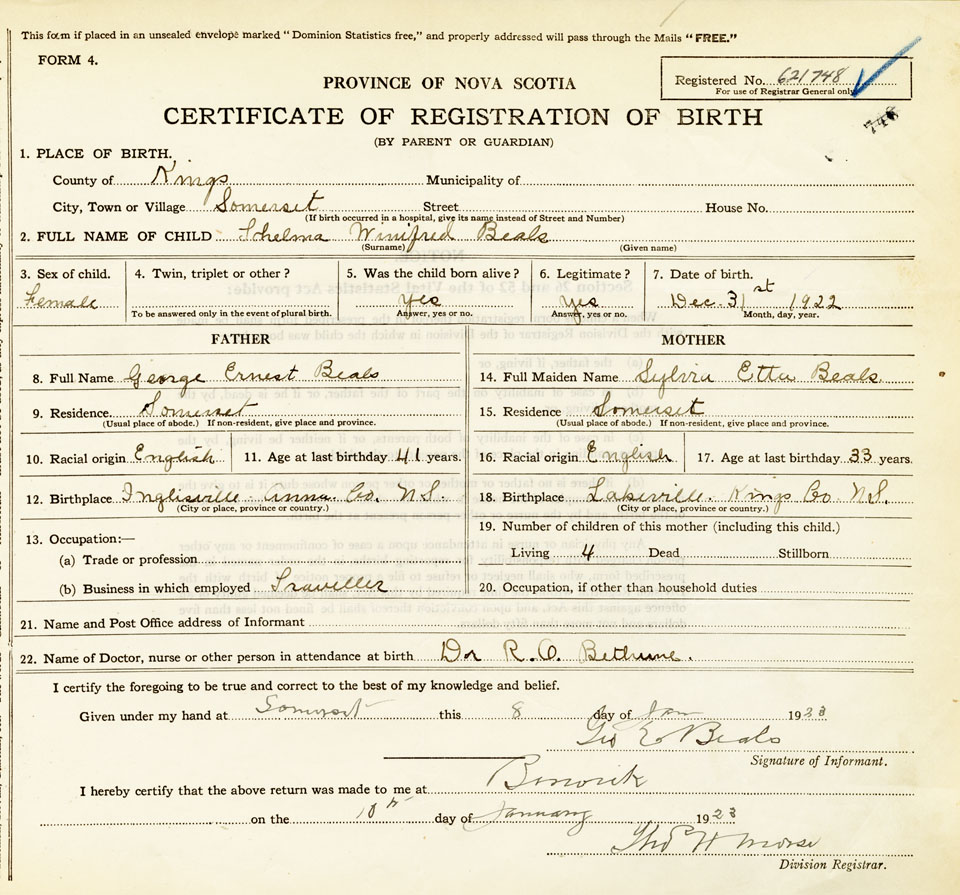 This form if placed in an unsealed envelope marked "Dominion Statistics free," and properly addressed will pass through the Mails "FREE."
FORM 4.
Registered No. 621748
For use of Registrar General only
748
PROVINCE OF NOVA SCOTIA
CERTIFICATE OF REGISTRATION OF BIRTH
(BY PARENT OR GUARDIAN)
1. PLACE OF BIRTH.
County of Kings Municipality of
City, Town or Village Somerset Street House No.
(If birth occurred in a hospital, give its name instead of Street and Number)
2. FULL NAME OF CHILD Thelma Winifred Beals
(Surname) (Given name)
3. Sex of child. 4. Twin, triplet or other? 5. Was the child born alive? 6. Legitimate? 7. Date of birth.
Female yes yes Dec. 31st 1922
To be answered only in the event of plural birth. Answer, yes or no. Answer, yes or no. Month, day, year.
FATHER MOTHER
8. Full Name George Ernest Beals 14. Full Maiden Name Sylvia Etta Beals
9. Residence. Somerset 15. Residence Somerset
(Usual place of abode.) If non-resident, give place and province. (Usual place of abode.) If non-resident, give place and province.
10. Racial origin English 11. Age at last birthday 41 years. 16. Racial origin English 17. Age at last birthday 33 years.
12. Birthplace Inglisville Anna. Co. N.S. 18. Birthplace Lakeville. Kings Co N.S.
(City or place, province or country.) (City or place, province or country.)
13. Occupation:— 19. Number of children of this mother (including this child.)
(a) Trade or profession Living 4 Dead Stillborn
(b) Business in which employed Traveller 20. Occupation, if other than household duties
21. Name and Post Office address of Informant
22. Name of Doctor, nurse or other person in attendance at birth Dr R. O. Bethune.
I certify the foregoing to be true and correct to the best of my knowledge and belief.
Given under my hand at Somerset this 8 day of Jan 1923
Geo E Beals
Signature of Informant.
I hereby certify that the above return was made to me at Berwick
on the 10th day of January 1923
Thos H Morse
Division Registrar.